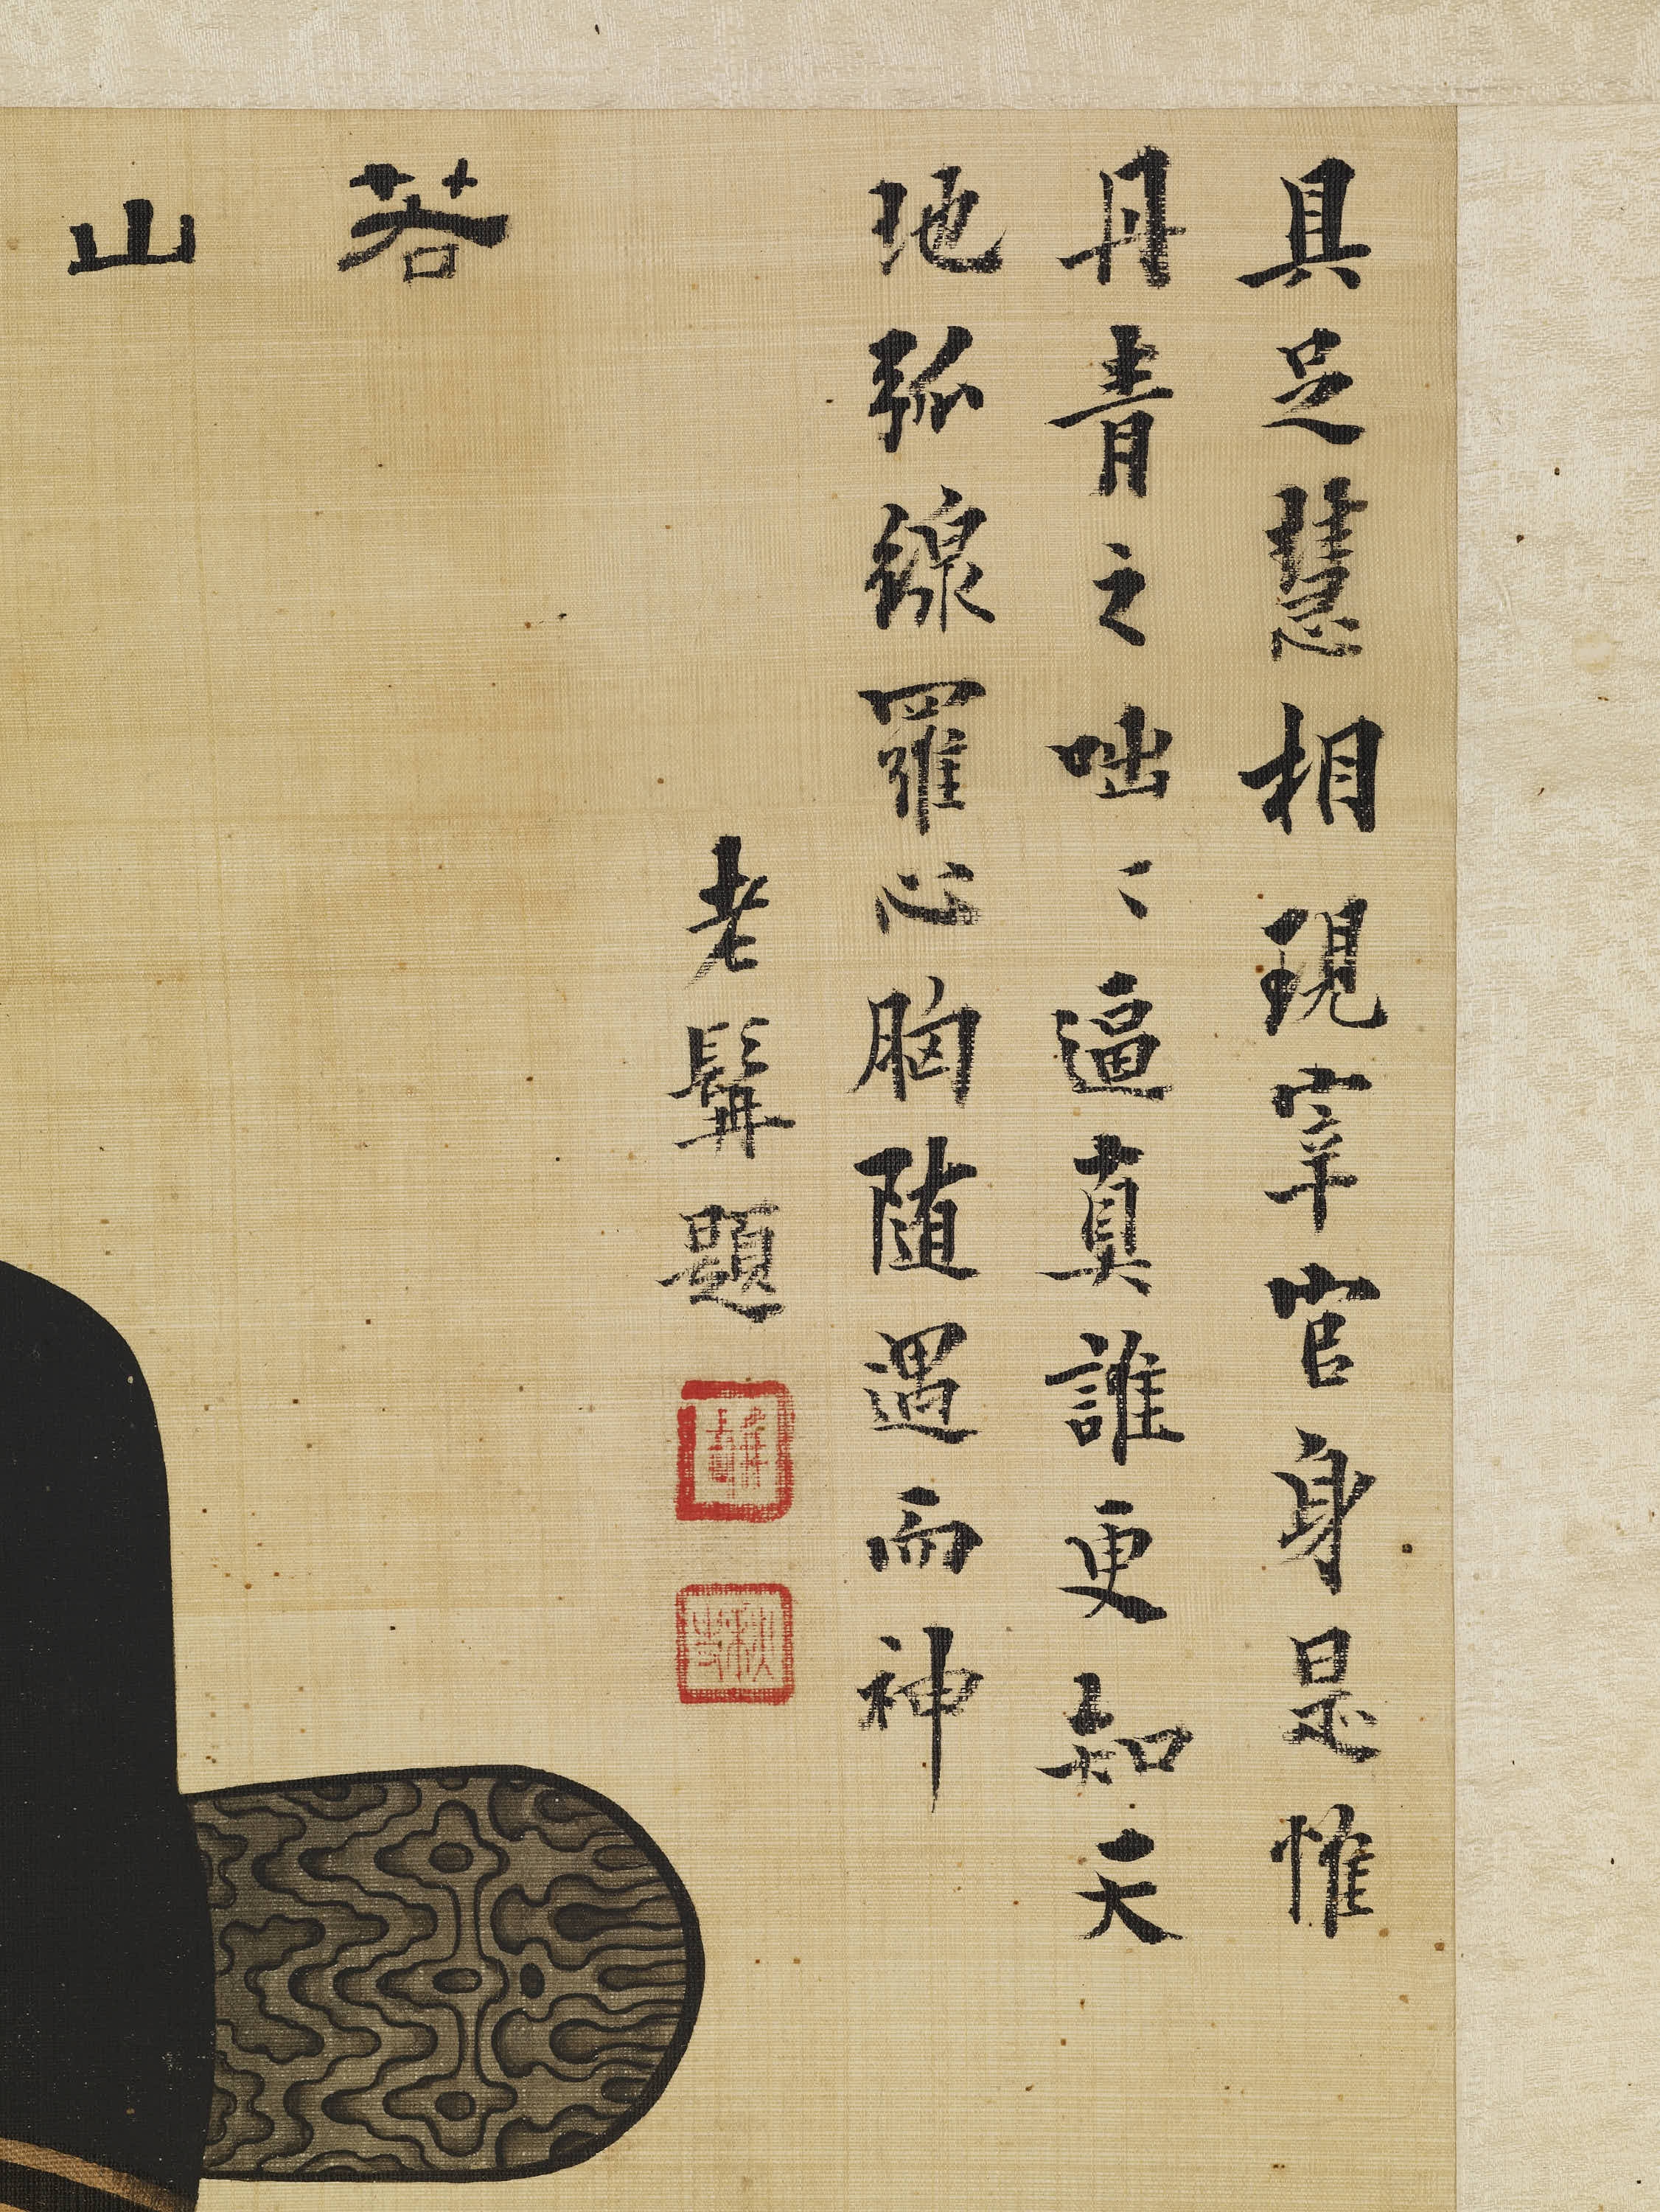 具足慧相現宰官身是惟
丹青之咄〻逼真誰更知天
地弧線羅心胸随遇而神
老髯題
若
山